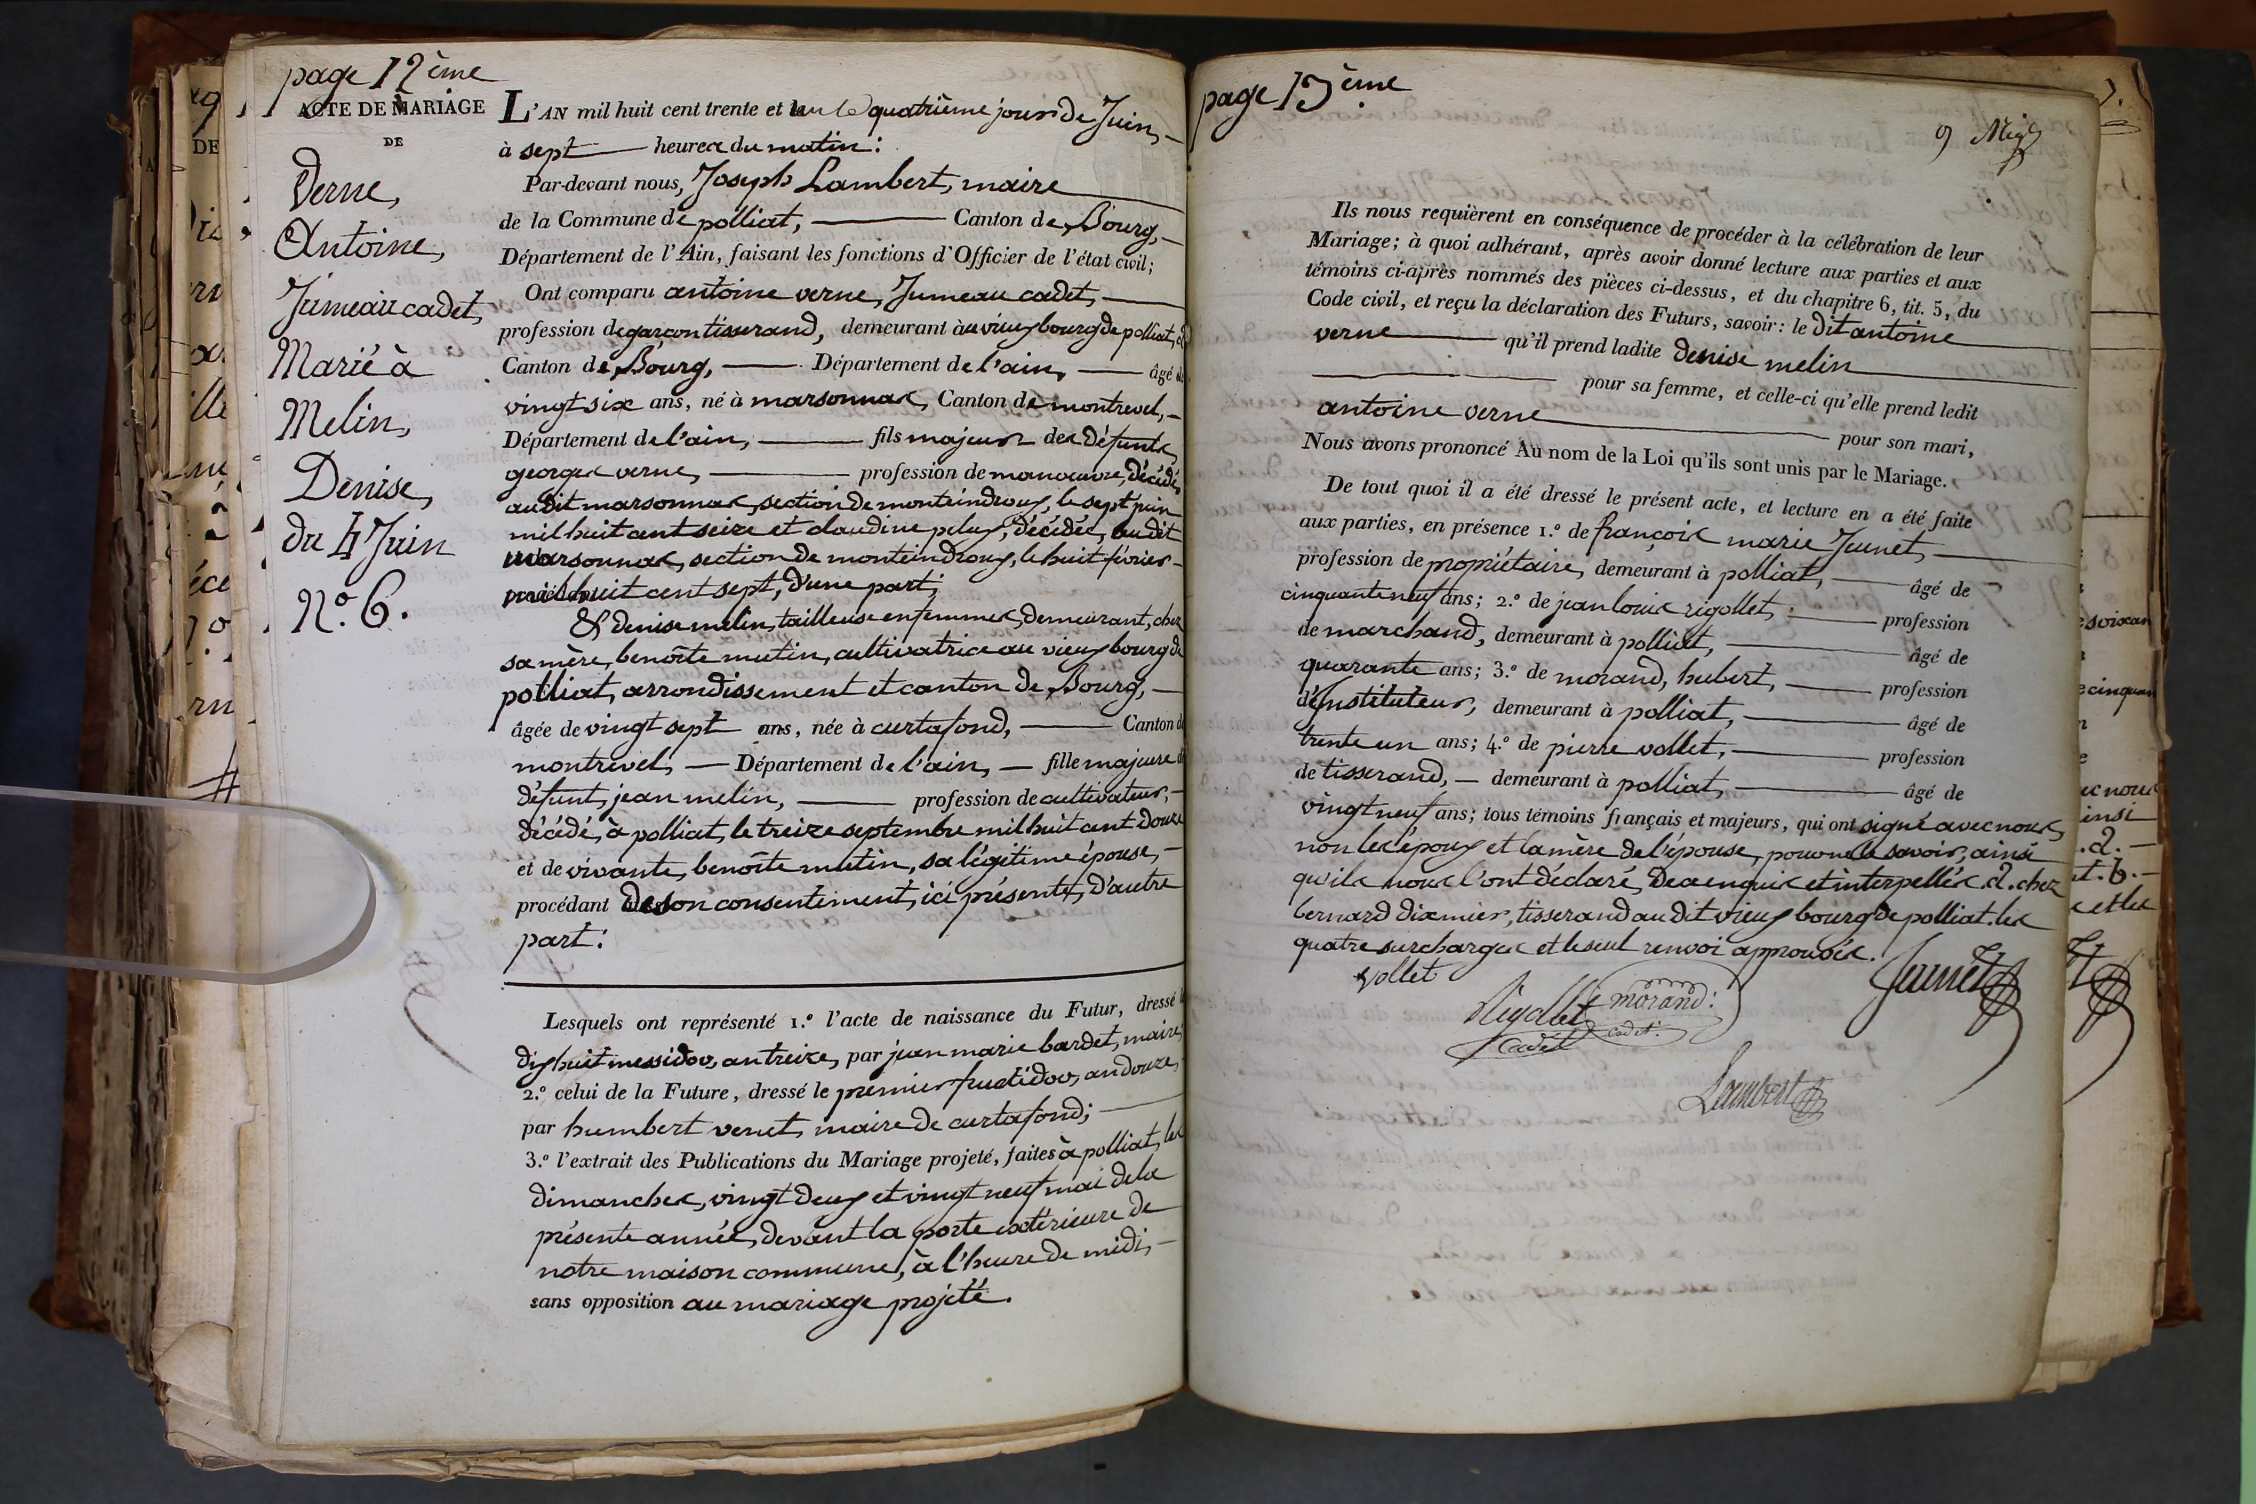 page 12ème
ACTE DE MARIAGE
DE
Verne,
Antoine,
Jumeau cadet,
Marié à
Melin,
Denise,
du 4 Juin
N.o 6.
L'AN mil huit cent trente et un le quatrième jour de Juin,
à sept heures du matin:
Par-devant nous, Joseph Lambert, maire
de la Commune de polliat, Canton de Bourg,
Département de l'Ain, faisant les fonctions d'Officier de l'état civil;
Ont comparu antoine verne, Jumeau cadet,
profession de garçon tisserand, demeurant au vieux bourg de polliat,
Canton de Bourg, Département de l'ain, âgé de
vingt six ans, né à marsonnas, Canton de montrevel,
Département de l'ain, fils majeur des défunts
georges verne, profession de manœuvre, décédé,
au dit marsonnas, section de monteindroux, le sept juin
mil huit cent seize et claudine pelux, décédée, au dit
marsonnas, section de monteindroux, le huit février
mil huit cent sept, d'une part;
& denise melin, tailleuse en femmes, demeurant, chez
sa mère, benoîte mutin, cultivatrice au vieux bourg de
polliat, arrondissement et canton de Bourg,
âgée de vingt sept ans, née à curtafond, Canton de
montrevel, Département de l'ain, fille majeure de
défunt, jean melin, profession de cultivateur,
décédé, à polliat, le treize septembre mil huit cent douze
et de vivante, benoîte mutin, sa légitime épouse,
procédant de son consentement, ici présente, d'autre
part:
Lesquels ont représenté 1.o l'acte de naissance du Futur, dressé le
dix huit messidor, an treize, par jean marie bardet, maire;
2.o celui de la Future, dressé le premier fructidor, an douze,
par humbert venet, maire de curtafond;
3.o l'extrait des Publications du Mariage projeté, faites à polliat, les
dimanches, vingt deux et vingt neuf mai de la
présente année, devant la porte extérieure de
notre maison commune, à l'heure de midi,
sans opposition au mariage projeté.
page 13ème
Ils nous requièrent en conséquence de procéder à la célébration de leur
Mariage; à quoi adhérant, après avoir donné lecture aux parties et aux
témoins ci-après nommés des pièces ci-dessus, et du chapitre 6, tit. 5, du
Code civil, et reçu la déclaration des Futurs, savoir: le dit antoine
verne qu'il prend ladite denise melin
pour sa femme, et celle-ci qu'elle prend ledit
antoine verne pour son mari,
Nous avons prononcé Au nom de la Loi qu'ils sont unis par le Mariage.
De tout quoi il a été dressé le présent acte, et lecture en a été faite
aux parties, en présence 1.o de françois marie Junet,
profession de propriétaire, demeurant à polliat, âgé de
cinquante neuf ans; 2.o de jean louis rigollet, profession
de marchand, demeurant à polliat, âgé de
quarante ans; 3.o de morand, hubert, profession
d'instituteur, demeurant à polliat, âgé de
trente un ans; 4.o de pierre vollet, profession
de tisserand, demeurant à polliat, âgé de
vingt neuf ans; tous témoins français et majeurs, qui ont signé avec nous,
non les époux et la mère de l'épouse, pour ne le savoir, ainsi
qu'ils nous l'ont déclaré, de ce enquis et interpellés. a. chez
bernard dixmier, tisserand au dit vieux bourg de polliat. les
quatre surcharges et le seul renvoi approuvés.
vollet
Rigollet
cadet
morand:
cadet.
Junet
Lambert